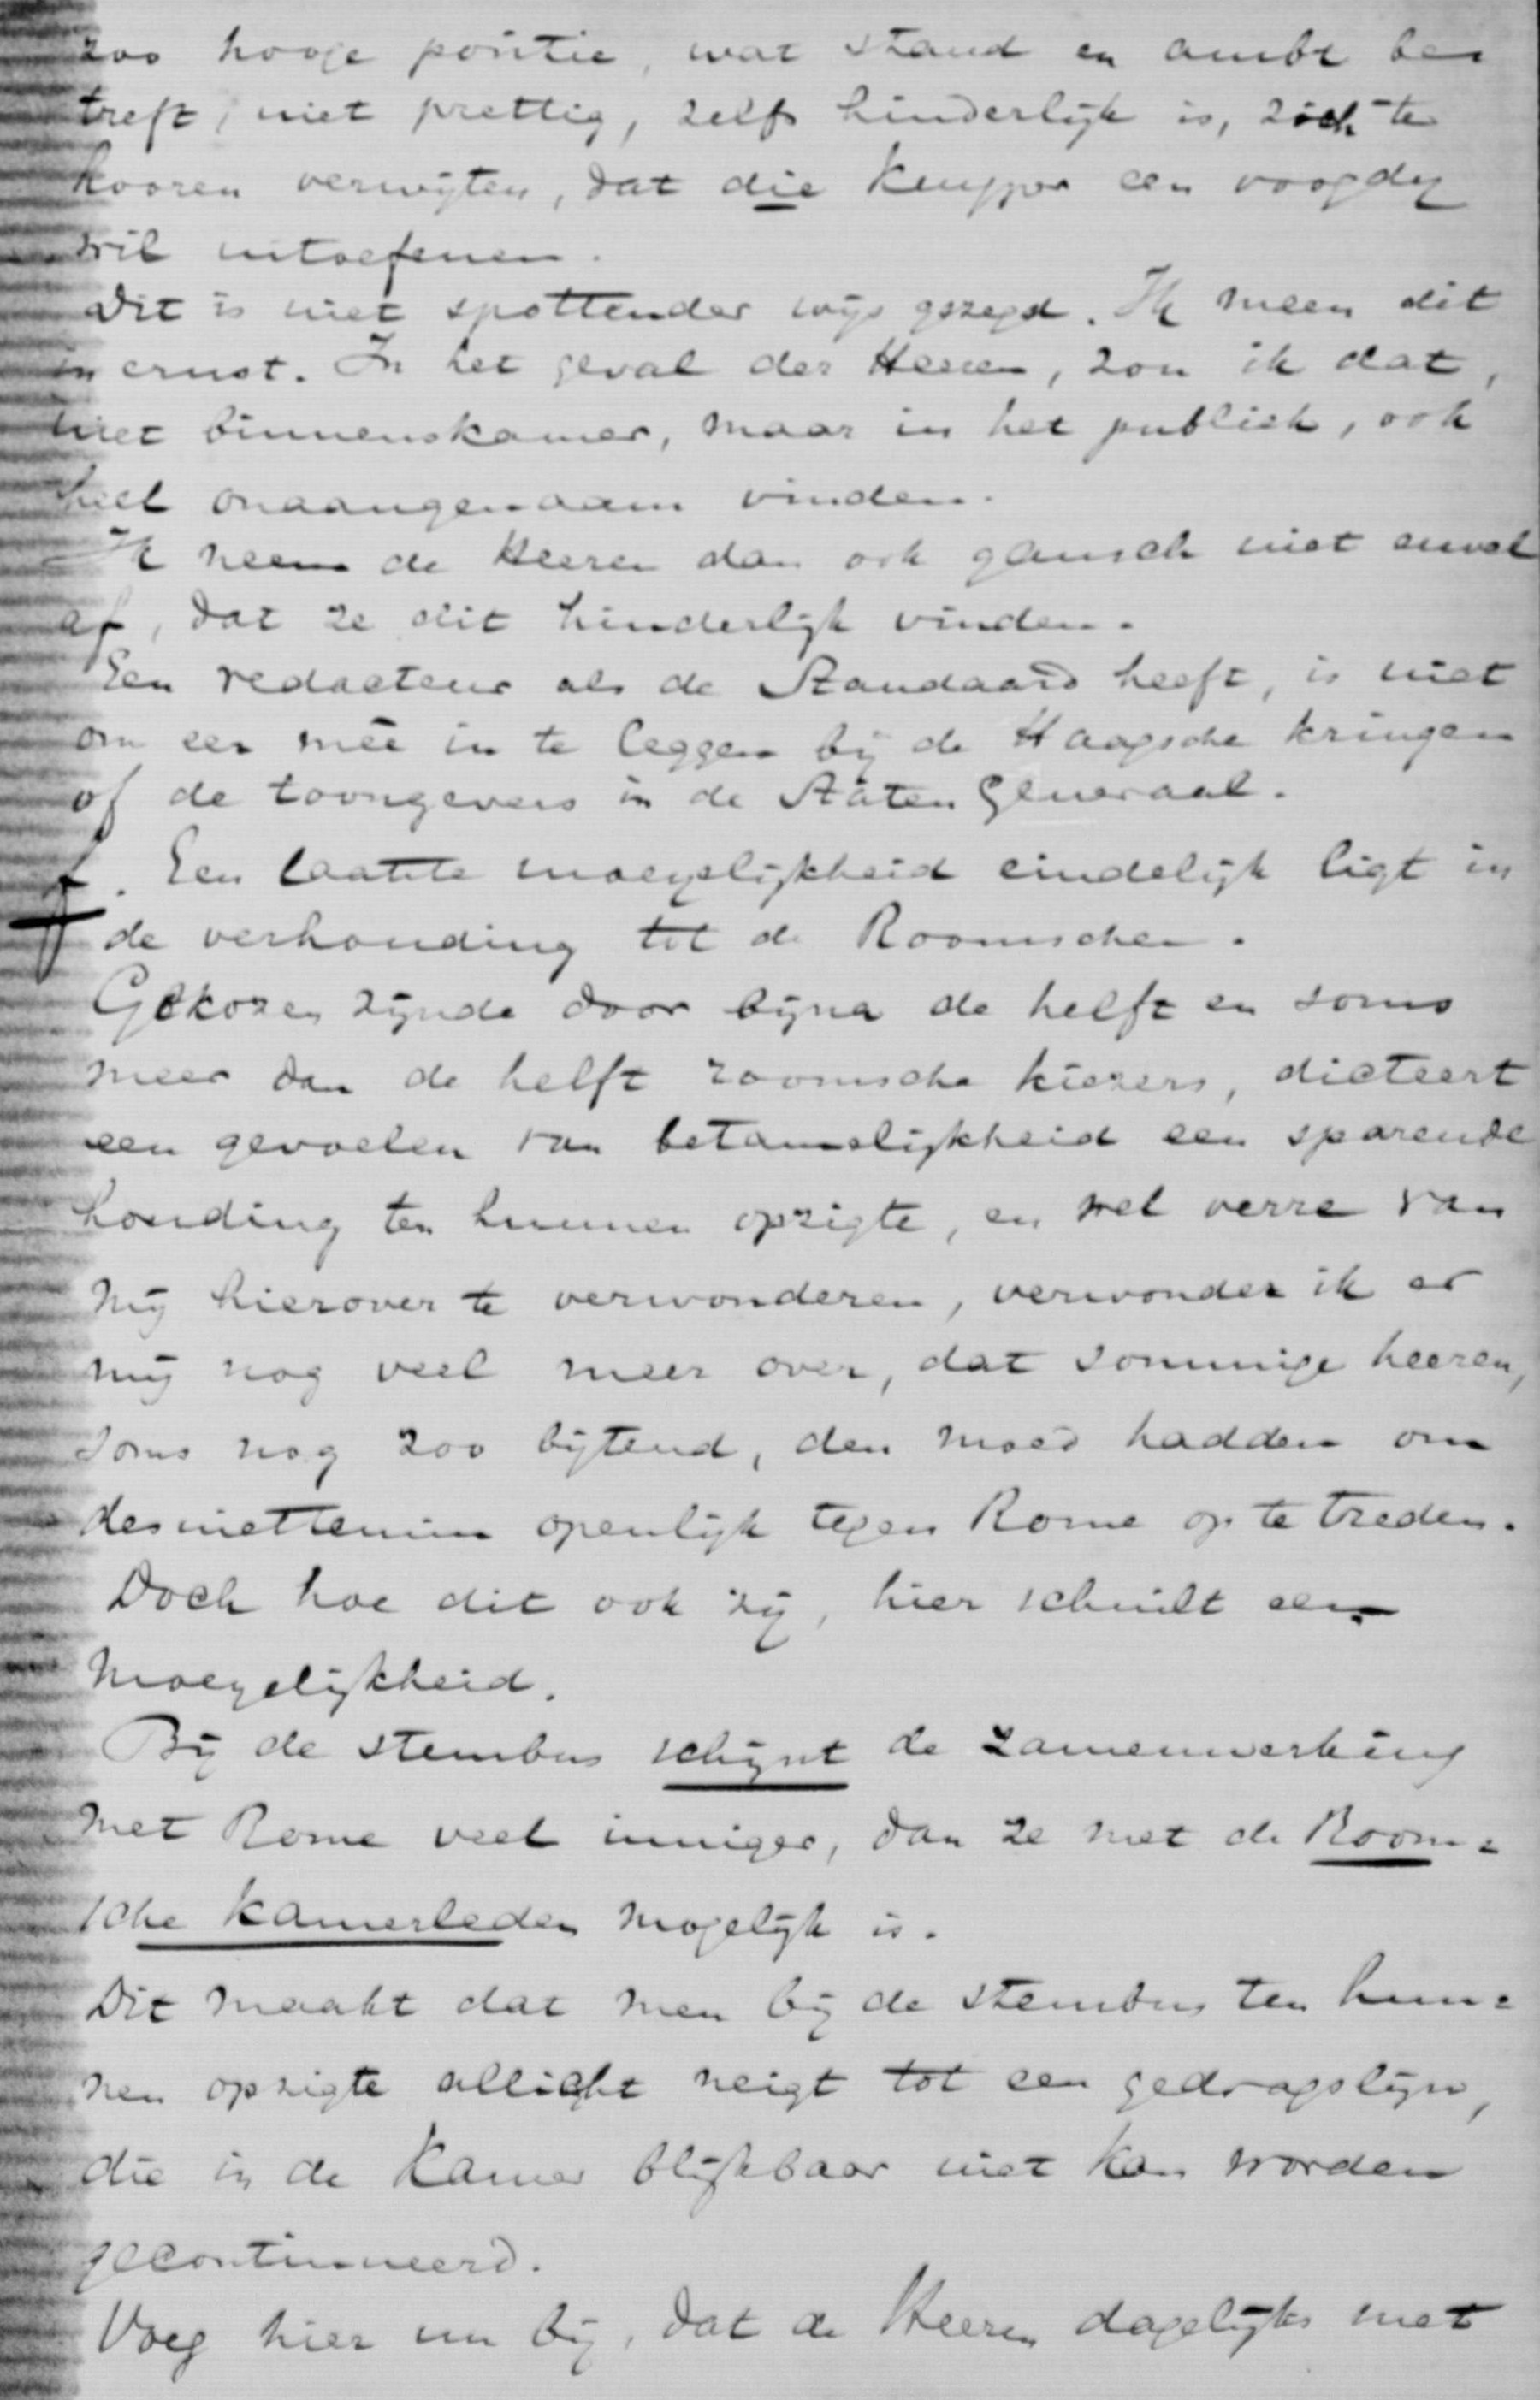 zoo hooge positie, wat stand en ambt be=
treft, niet prettig, zelfs hinderlijk is, zich te
hooren verwijten, dat die Kuyper een voogdij
wil uitoefenen.
Dit is niet spottender wijs gezegd. Ik meen dit
in ernst. In het geval der Heeren, zou ik dat,
niet binnenskamer, maar in het publiek, ook
heel onaangenaam vinden.
Ik neem de Heeren dan ook gansch niet euvel
af, dat ze dit hinderlijk vinden.
Een redacteur als de Standaard heeft, is niet
om eer meê in te leggen bij de Haagsche kringen
of de toongevers in de Staten Generaal.
f. Een laatste moeyelijkheid eindelijk ligt in
de verhouding tot de Roomschen.
Gekozen zijnde door bijna de helft en soms
meer dan de helft roomsche kiezers, dicteert
een gevoelen van betamelijkheid een sparende
houding ten hunnen opzigte, en wel verre van
mij hierover te verwonderen, verwonder ik er
mij nog veel meer over, dat sommige heeren,
soms nog zoo bijtend, den moed hadden om
desniettemin openlijk tegen Rome op te treden.
Doch hoe dit ook zij, hier schuilt een
moeyelijkheid.
Bij de stembus schijnt de zamenwerking
met Rome veel inniger, dan ze met de Room=
sche kamerleden mogelijk is.
Dit maakt dat men bij de stembus ten hun=
nen opzigte allicht neigt tot een gedragslijn,
die in de Kamer blijkbaar niet kan worden
gecontinueerd.
Voeg hier nu bij, dat de Heeren dagelijks met